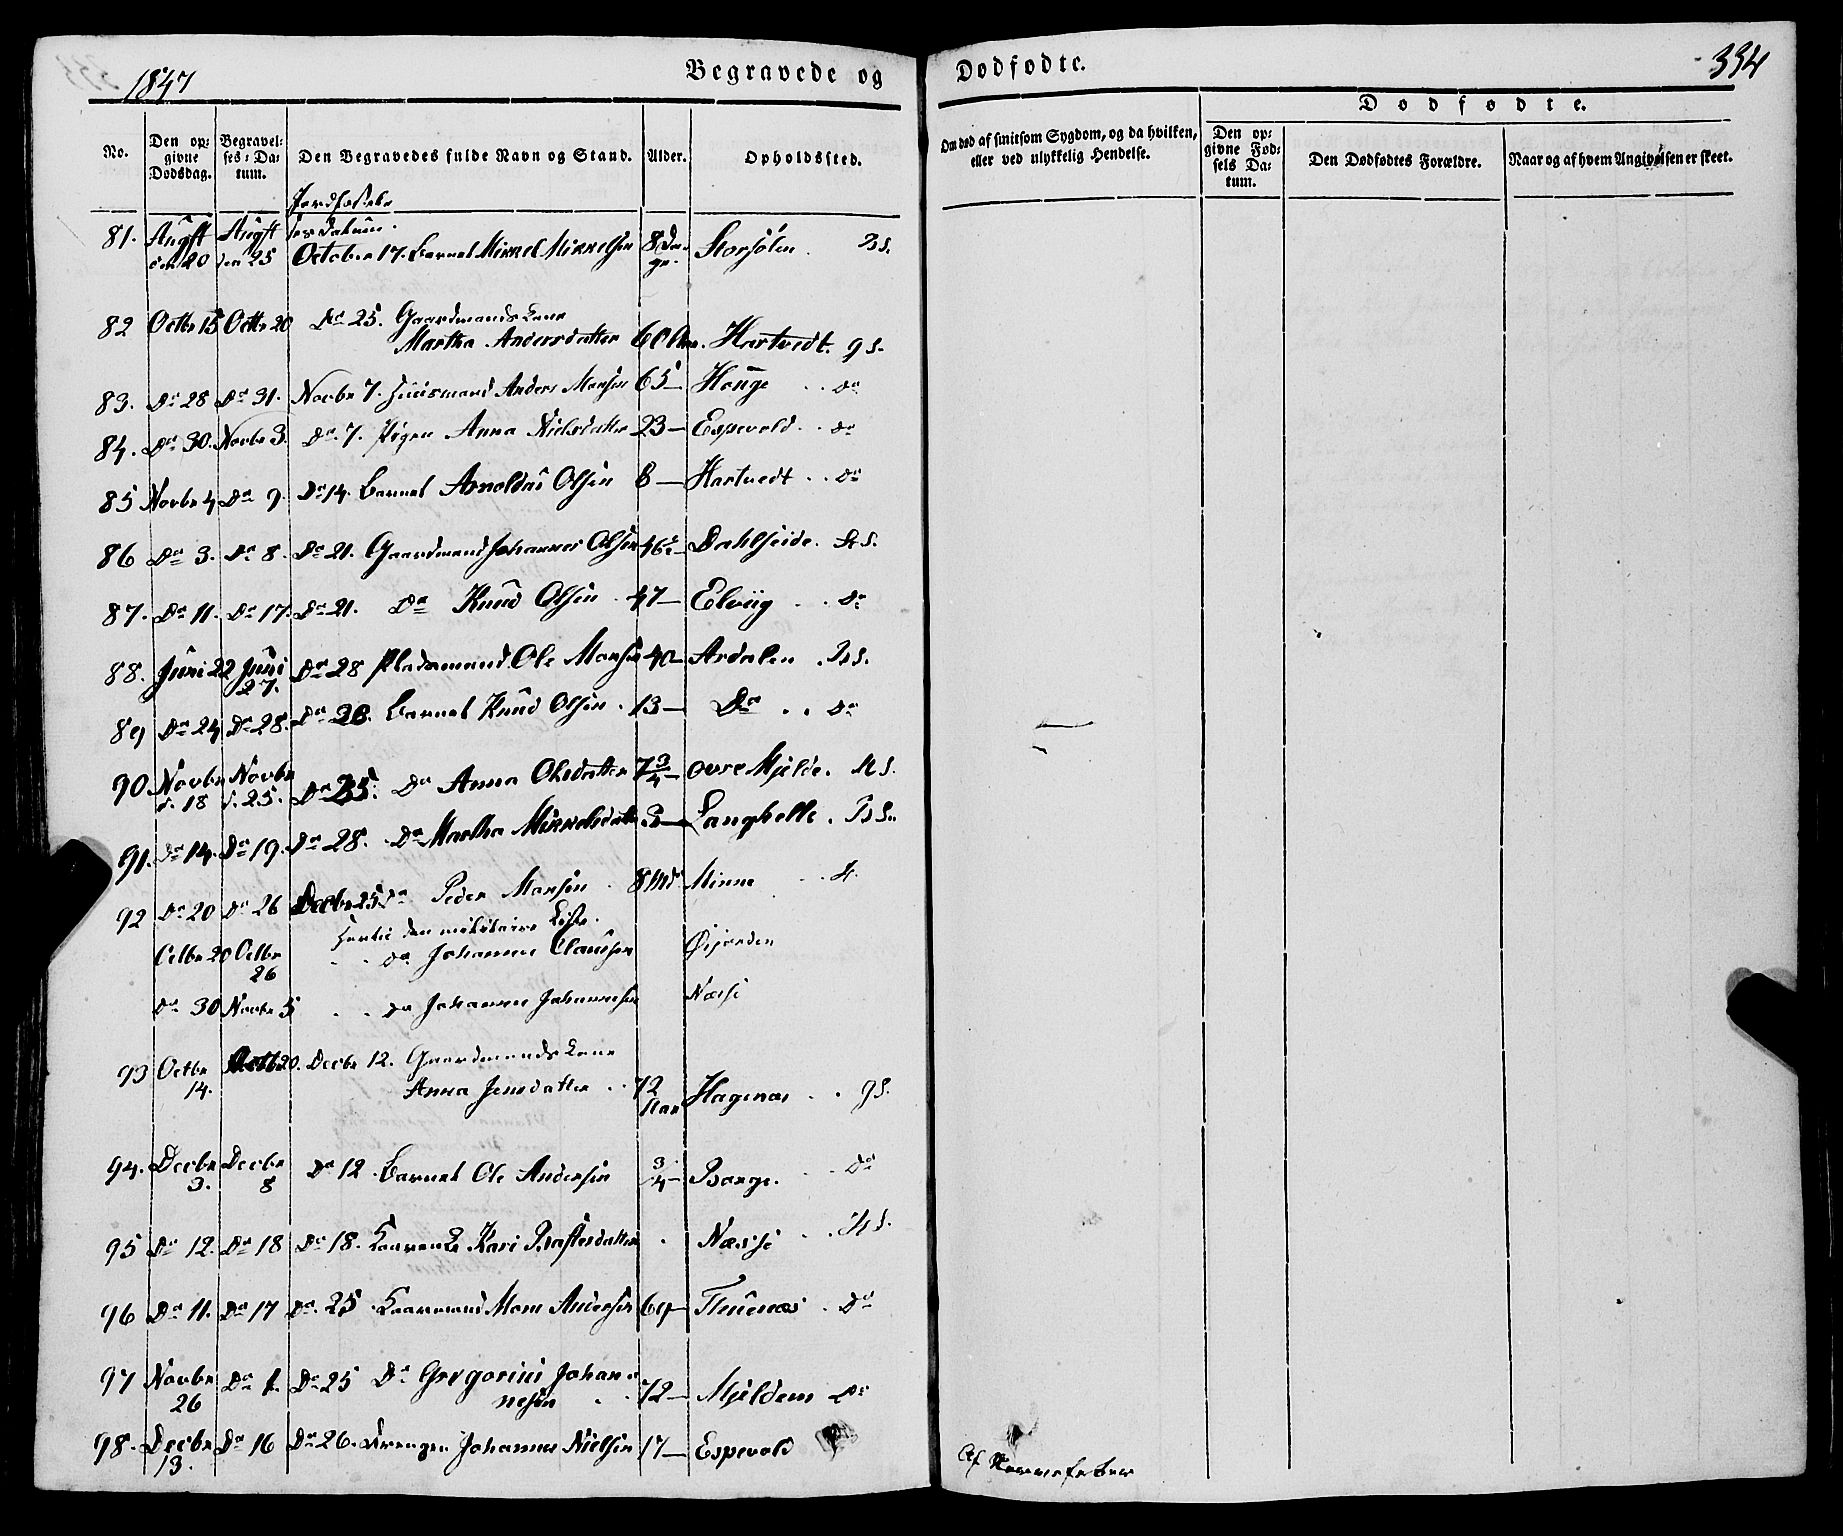 1847
Begravede og
Dødfødte.
334
No.
Den op-
givne
Dødsdag.
Begravel-
ses-Da-
tum.
Den Begravedes fulde Navn og Stand.
Alder.
Opholdssted.
Om død af smitsom Sygdom, og da hvilken,
eller ved ulykkelig Hendelse.
Dødfødte.
Den op-
givne Fød-
sels Da-
tum.
Den Dødfødtes Forældre.
Naar og af hvem Angivelsen er skeet.
Jordfæstel
ses datum.
81. Augst den 20 Augst den 25 October 17. Barnet Mikkel Mikkelsen 8 Da-ge. Storsølen
82 Octbr 15 Octbr 20 Do 25. Gaardmands Kone
Martha Andersdatter 60 Aar. Hartvedt. gS.
83. Do 28 Do 31. Novbr 7. Huusmand Anders Monsen 65 Houge Do
84. Do 30. Novbr 3. Do 7. Pigen Anna Nielsdatter 23 Espevold Do
85 Novbr 4 Do 9. Do 14. Barnet Arnoldus Olsen 8 Hartvedt Do
86 Do 3. Do 8. Do 21. Gaardmand Johannes Olsen Dahlseide. S.
87. Do 11. Do 17. Do 21. Do Knud Olsen 47 Elviig Do
88. Juni 22 Juni 27. Do 28 Pladsmand Ole Monsen 40 Ardalen
89 Do 24 Do 28. Do 28. Barnet Knud Olsen 13 Do Do
90 Novbr d. 18 Novbr d. 25. Do 25. Do Anna Olsdatter 7 3/4 Ovre Mjelde.
91. Do 14. Do 19. Do 28. Do Martha Mikkelsdatter Langhelle.
92 Do 20 Do 26 Decbr 25 Do Peder Monsen 8 Md Minne
den militaire Liste.
Octbr 20 Octbr 26 Do Johannes Clausen Øijorden
Do 30 Novbr 5 Do Johannes Johannesen Næsse
93 Octbr 14. Octbr 20. Decbr 12. Gaardmands Kone
Anna Jensdatter 72 Aar Hagenæs gS.
94. Decbr 3. Decbr 8 Do 12. Barnet Ole Andersen 3/4 Borge. Do
95 Do 12. Do 18 Do 18. Kari Næsse
96 Do 11. Do 17 Do 25 Mons Andersen 69 Tuenæs Do
97 Novbr 26 Do 1. Do 25 Do Gregorius Johan-
nesen 72 Mjeldem Do
98. Decbr 13. Do 16 Do 26. Drengen Johannes Nielsen 17 Espevold
Af Nervefeber